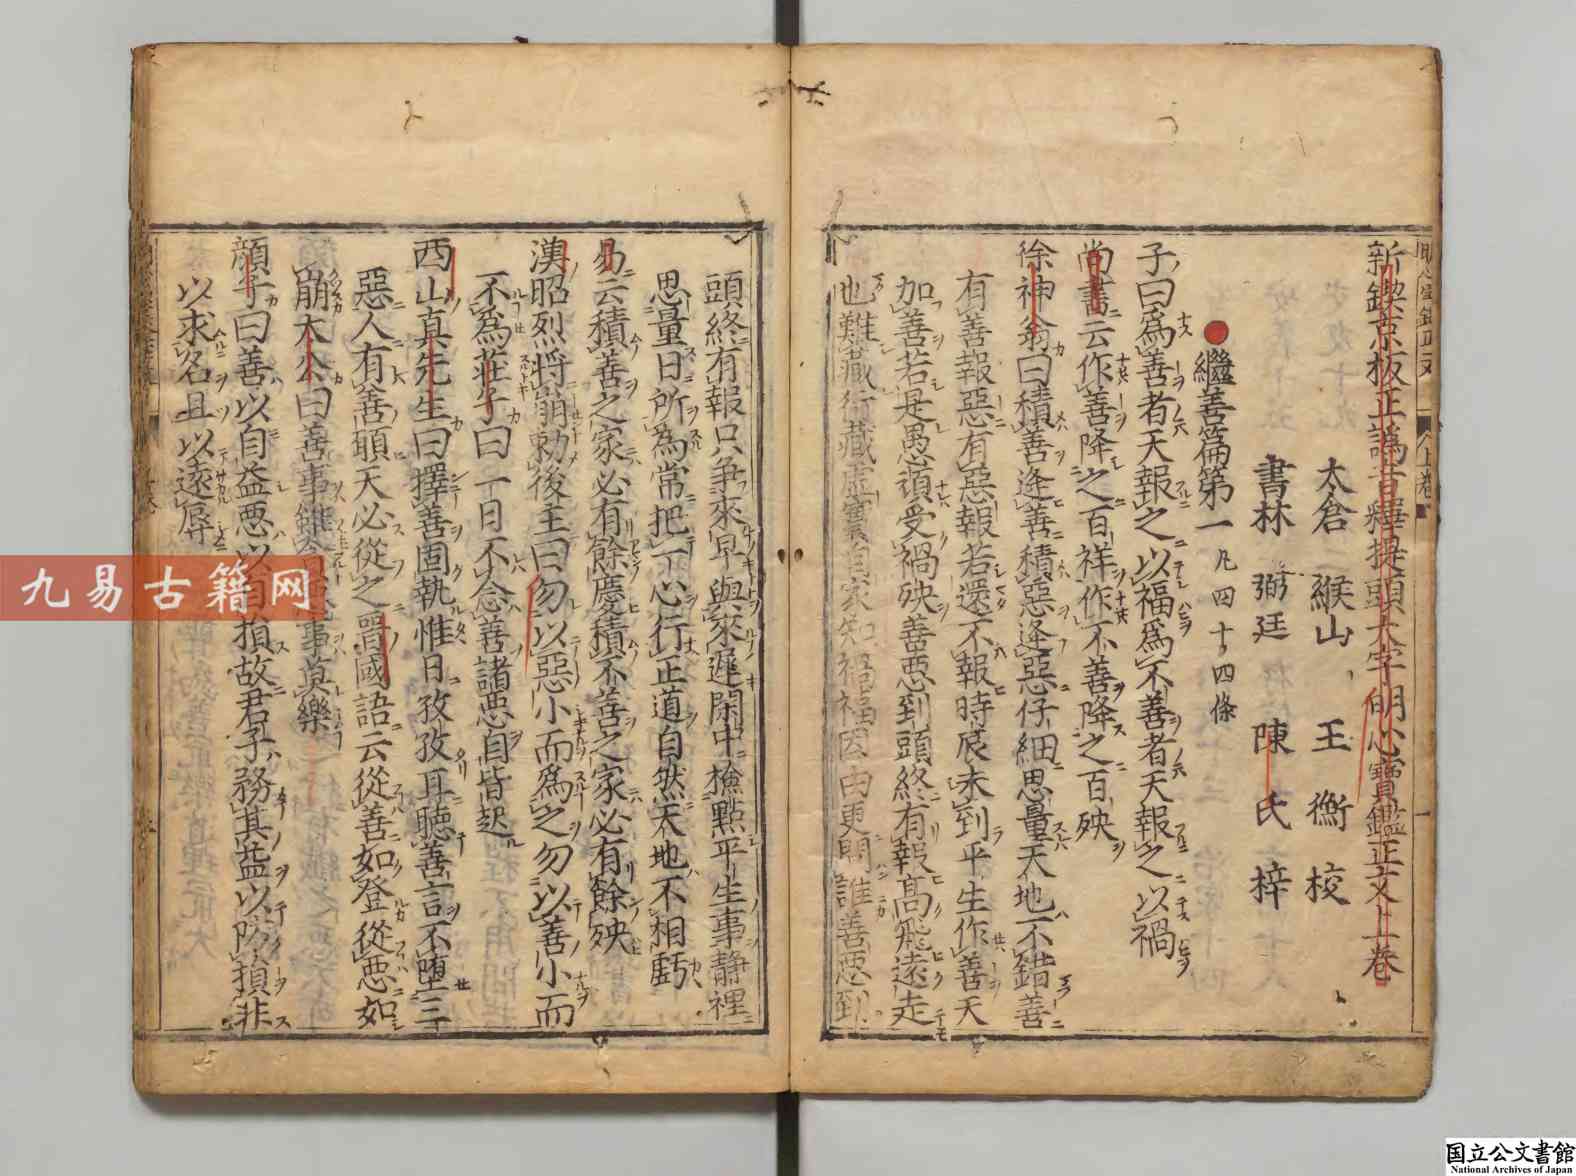 新鍥京板正譌音釋提頭大字明心寶鑑正文上卷
太倉 緱山 王衡 校
書林 弼廷 陳氏 梓
繼善篇第一 凡四十四條
子曰為善者天報之以福為不善者天報之以禍
尚書云作善降之百祥作不善降之百殃
徐神翁曰積善逢善積惡逢惡仔細思量天地不錯善
有善報惡有惡報若還不報時辰未到平生作善天
加善若是愚頑受禍殃善惡到頭終有報高飛遠走
也難藏行藏虛實自家知禍福因由更問誰善惡到
頭終有報只争來早與來遲閑中撿點平生事静裡
思量日所為常把一心行正道自然天地不相虧
易云積善之家必有餘慶積不善之家必有餘殃
漢昭烈將崩勅後主曰勿以惡小而為之勿以善小而
不為莊子曰一日不念善諸惡自皆起
西山真先生曰擇善固執惟日孜孜耳聽善言不墮三
惡人有善願天必從之晉國語云從善如登從惡如
崩太公曰善事雖貪惡事莫樂
顏子曰善以自益惡以自損故君子務其益以防損非
以求名且以遠辱
九易古籍网
国立公文書館
National Archives of Japan